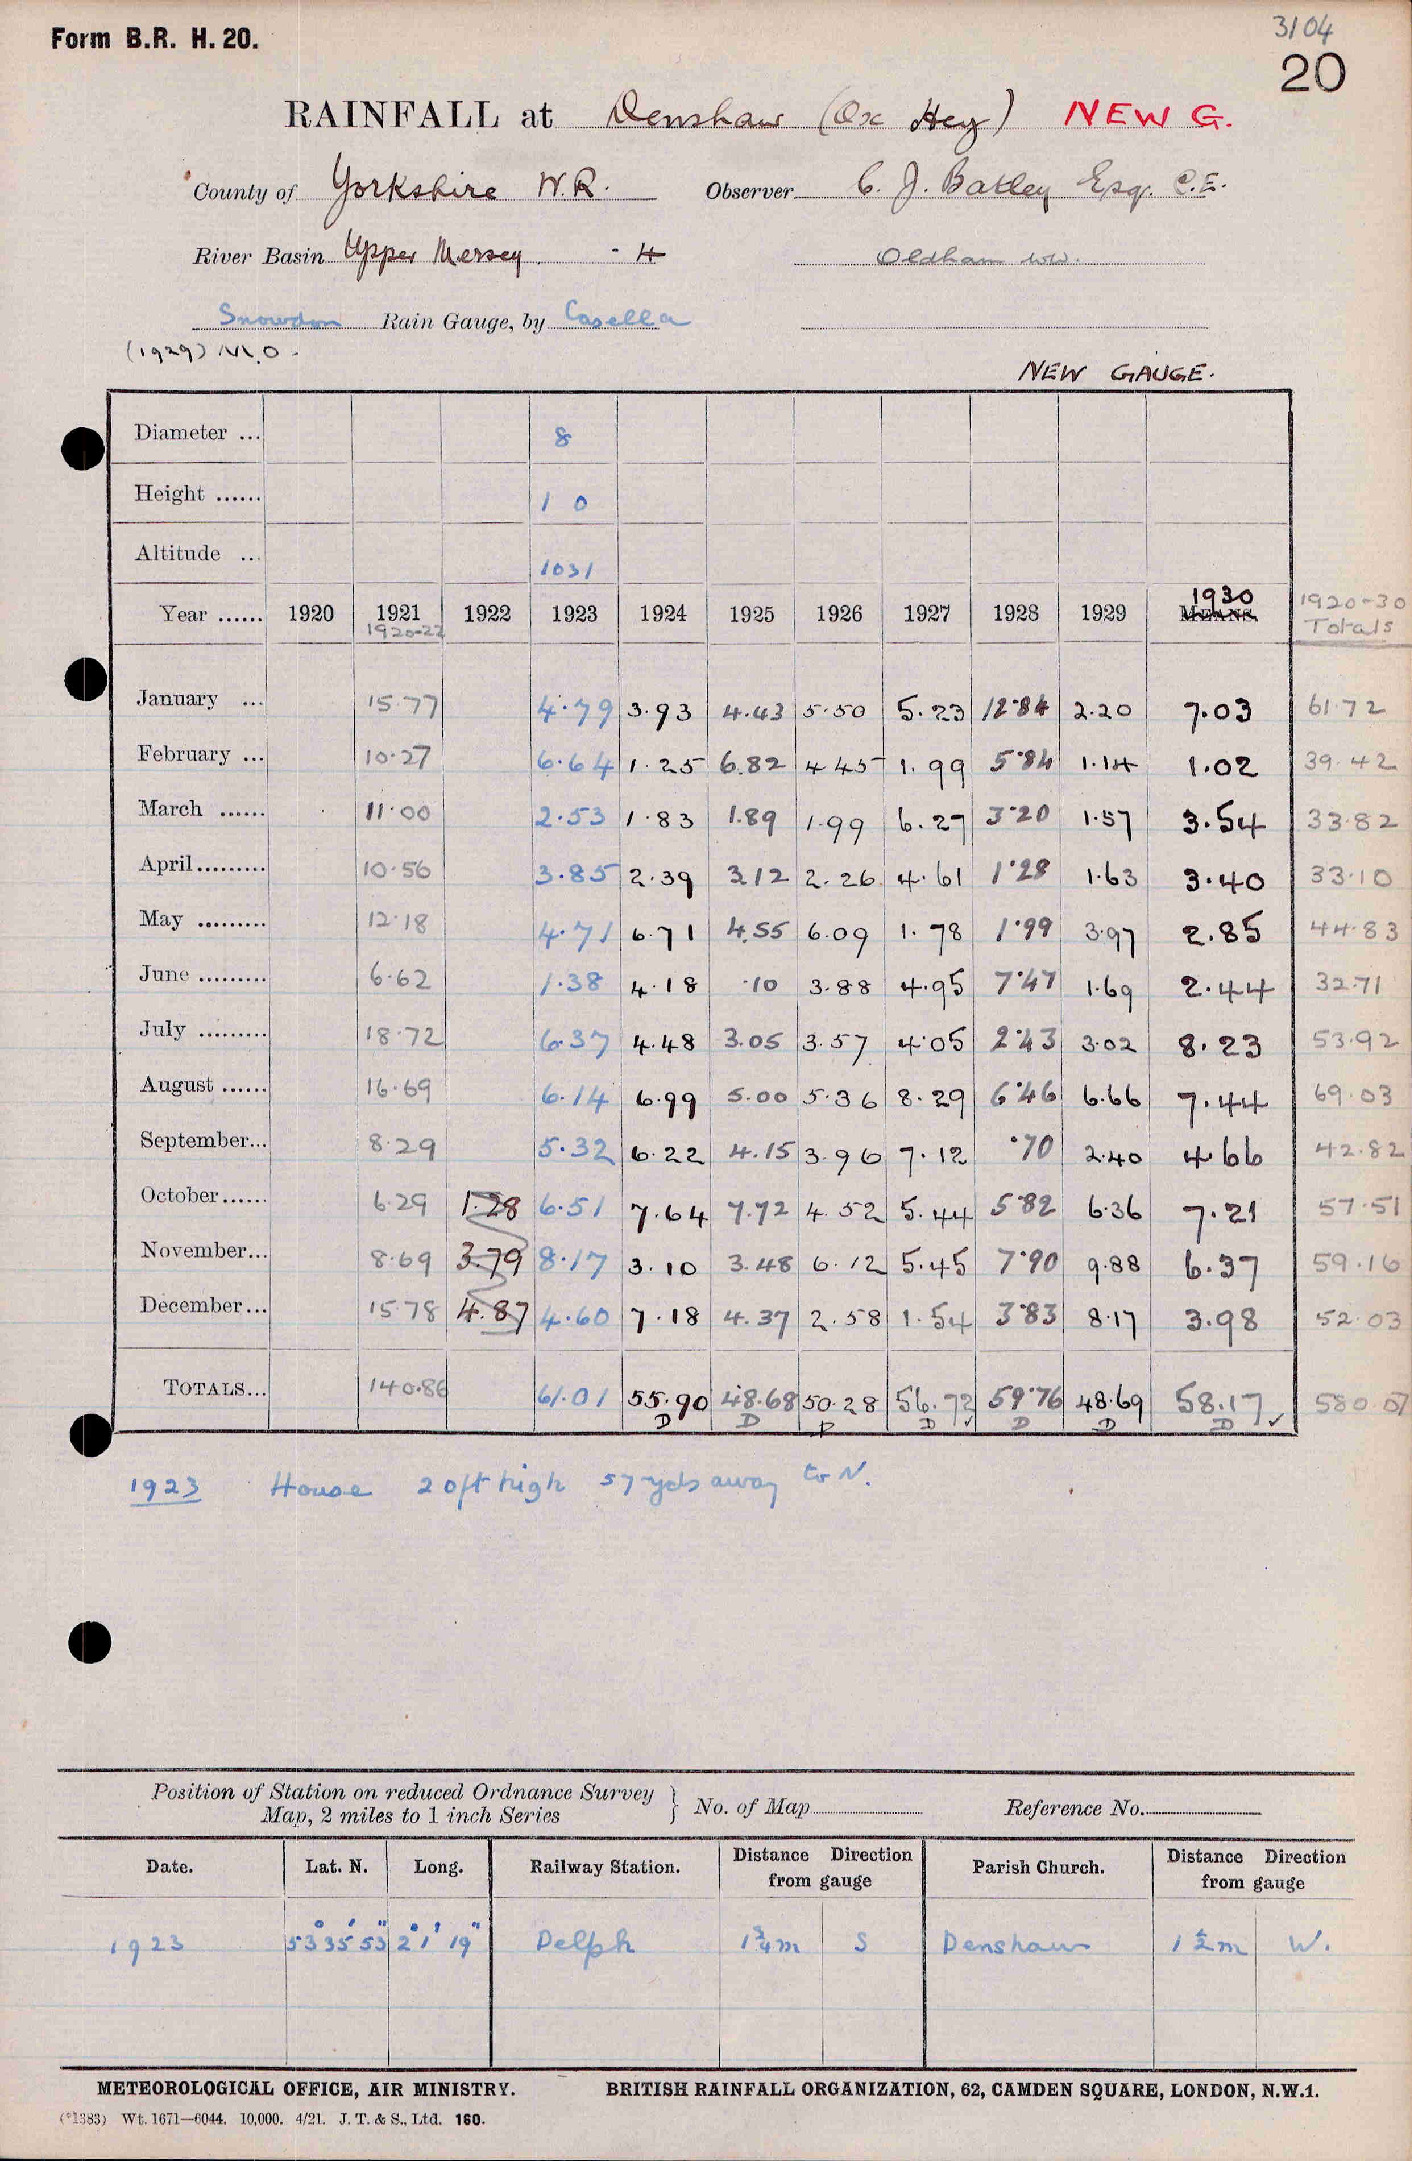 Form B.R. H. 20.
3104
20
RAINFALL at Denshaw (Ox Hey) NEW G.
County of Yorkshire W.R. Observer C. J. Batley Esq. C.E.
River Basin Upper Mersey - 4 Oldham WW.
Snowdon Rain Gauge, by Casella
(1929) M.O.
NEW GAUGE.
Diameter ... 8
Height ...... 1 0
Altitude ... 1031
Year ...... 1920 1921 1922 1923 1924 1925 1926 1927 1928 1929 MEANS. 1930 1920-30 Totals
1920-22
January ... 15.77 4.79 3.93 4.43 5.50 5.23 12.84 2.20 7.03 61.72
February ... 10.27 6.64 1.25 6.82 4.45 1.99 5.84 1.14 1.02 39.42
March ...... 11.00 2.53 1.83 1.89 1.99 6.27 3.20 1.57 3.54 33.82
April......... 10.56 3.85 2.39 3.12 2.26 4.61 1.28 1.63 3.40 33.10
May ......... 12.18 4.71 6.71 4.55 6.09 1.78 1.99 3.97 2.85 44.83
June ......... 6.62 1.38 4.18 .10 3.88 4.95 7.47 1.69 2.44 32.71
July ......... 18.72 6.37 4.48 3.05 3.57 4.05 2.43 3.02 8.23 53.92
August ...... 16.69 6.14 6.99 5.00 5.36 8.29 6.46 6.66 7.44 69.03
September... 8.29 5.32 6.22 4.15 3.96 7.12 .70 2.40 4.66 42.82
October...... 6.29 1.28 6.51 7.64 7.72 4.52 5.44 5.82 6.36 7.21 57.51
November... 8.69 3.79 8.17 3.10 3.48 6.12 5.45 7.90 9.88 6.37 59.16
December... 15.78 4.87 4.60 7.18 4.37 2.58 1.54 3.83 8.17 3.98 52.03
TOTALS... 140.86 61.01 55.90 48.68 50.28 56.72 59.76 48.69 58.17 580.07
D D D D D D D
1923 House 20ft high 57 yds away to N.
Position of Station on reduced Ordnance Survey
Map, 2 miles to 1 inch Series } No. of Map Reference No.
Date. Lat. N. Long. Railway Station. Distance Direction from gauge Parish Church. Distance Direction from gauge
1923 53°35'53" 2°1'19" Delph 1¾m S Denshaw 1½m W.
METEOROLOGICAL OFFICE, AIR MINISTRY. BRITISH RAINFALL ORGANIZATION, 62, CAMDEN SQUARE, LONDON, N.W.1.
(*1383) Wt. 1671—6044. 10,000. 4/21. J. T. & S., Ltd. 160.